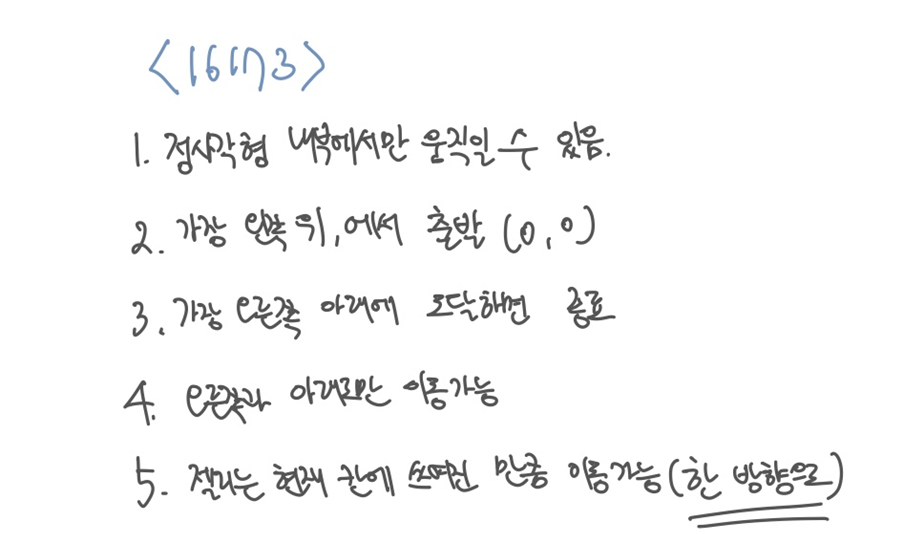 <16173>
1. 정사각형 내부에서만 움직일 수 있음.
2. 가장 왼쪽 위,에서 출발 (0,0)
3. 가장 오른쪽 아래에 도달하면 종료
4. 오른쪽과 아래로만 이동가능
5. 젤리는 현재 칸에 쓰여진 만큼 이동가능(한 방향으로)